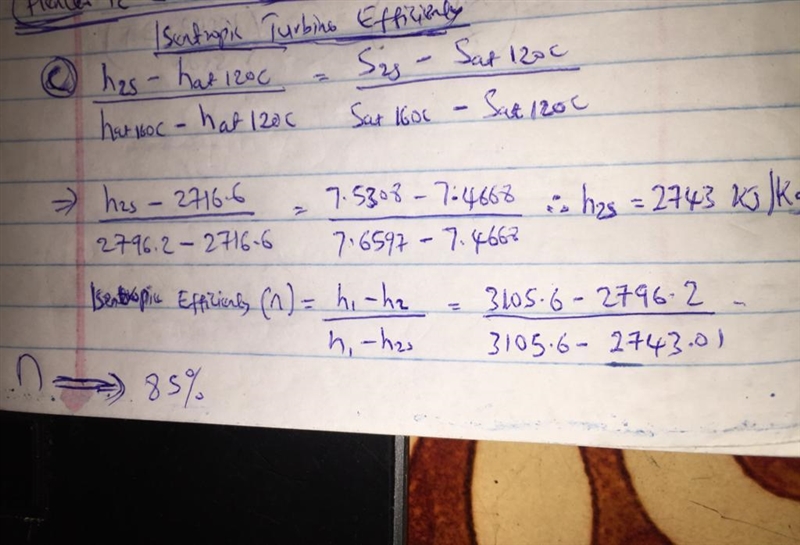 Isentropic Turbine Efficiency
(C) h2s - hat 120c / hat 160c - hat 120c = S2s - Sat 120c / Sat 160c - Sat 120c
⇒ h2s - 2716.6 / 2796.2 - 2716.6 = 7.5308 - 7.4668 / 7.6597 - 7.4668 ∴ h2s = 2743 KJ/Kg
Isentropic Efficiency (n) = h1 - h2 / h1 - h2s = 3105.6 - 2796.2 / 3105.6 - 2743.01 =
n ⇒ 85%